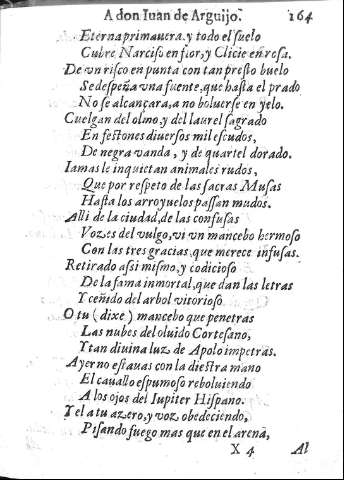 A don Iuan de Arguijo. 164
Eterna primauera, y todo el suelo
Cubre Narciso en flor, y Clicie en resa.
De vn risco en punta con tan presto buelo
Se despeña vna fuente, que hasta el prado
No se alcançara, a no boluerse en yelo.
Cuelgan del olmo, y del laurel sagrado
En festones diuersos mil escudos,
De negra vanda, y de quartel dorado.
Iamas le inquietan animales rudos,
Que por respeto de las sacras Musas
Hasta los arroyuelos passan mudos.
Alli de la ciudad, de las confusas
Vozes del vulgo, vi vn mancebo hermoso
Con las tres gracias, que merece infusas.
Retirado assi mismo, y codicioso
De la fama inmortal, que dan las letras
Y ceñido del arbol vitorioso
O tu (dixe) mancebo que penetras
Las nubes del oluido Cortesano,
Y tan diuina luz de Apolo impetras.
Ayer no estauas con la diestra mano
El cauallo espumoso reboluiendo
A los ojos del Iupiter Hispano.
Y el a tu azero, y voz obedeciendo,
Pisando fuego mas que en el arena,
X 4 Al